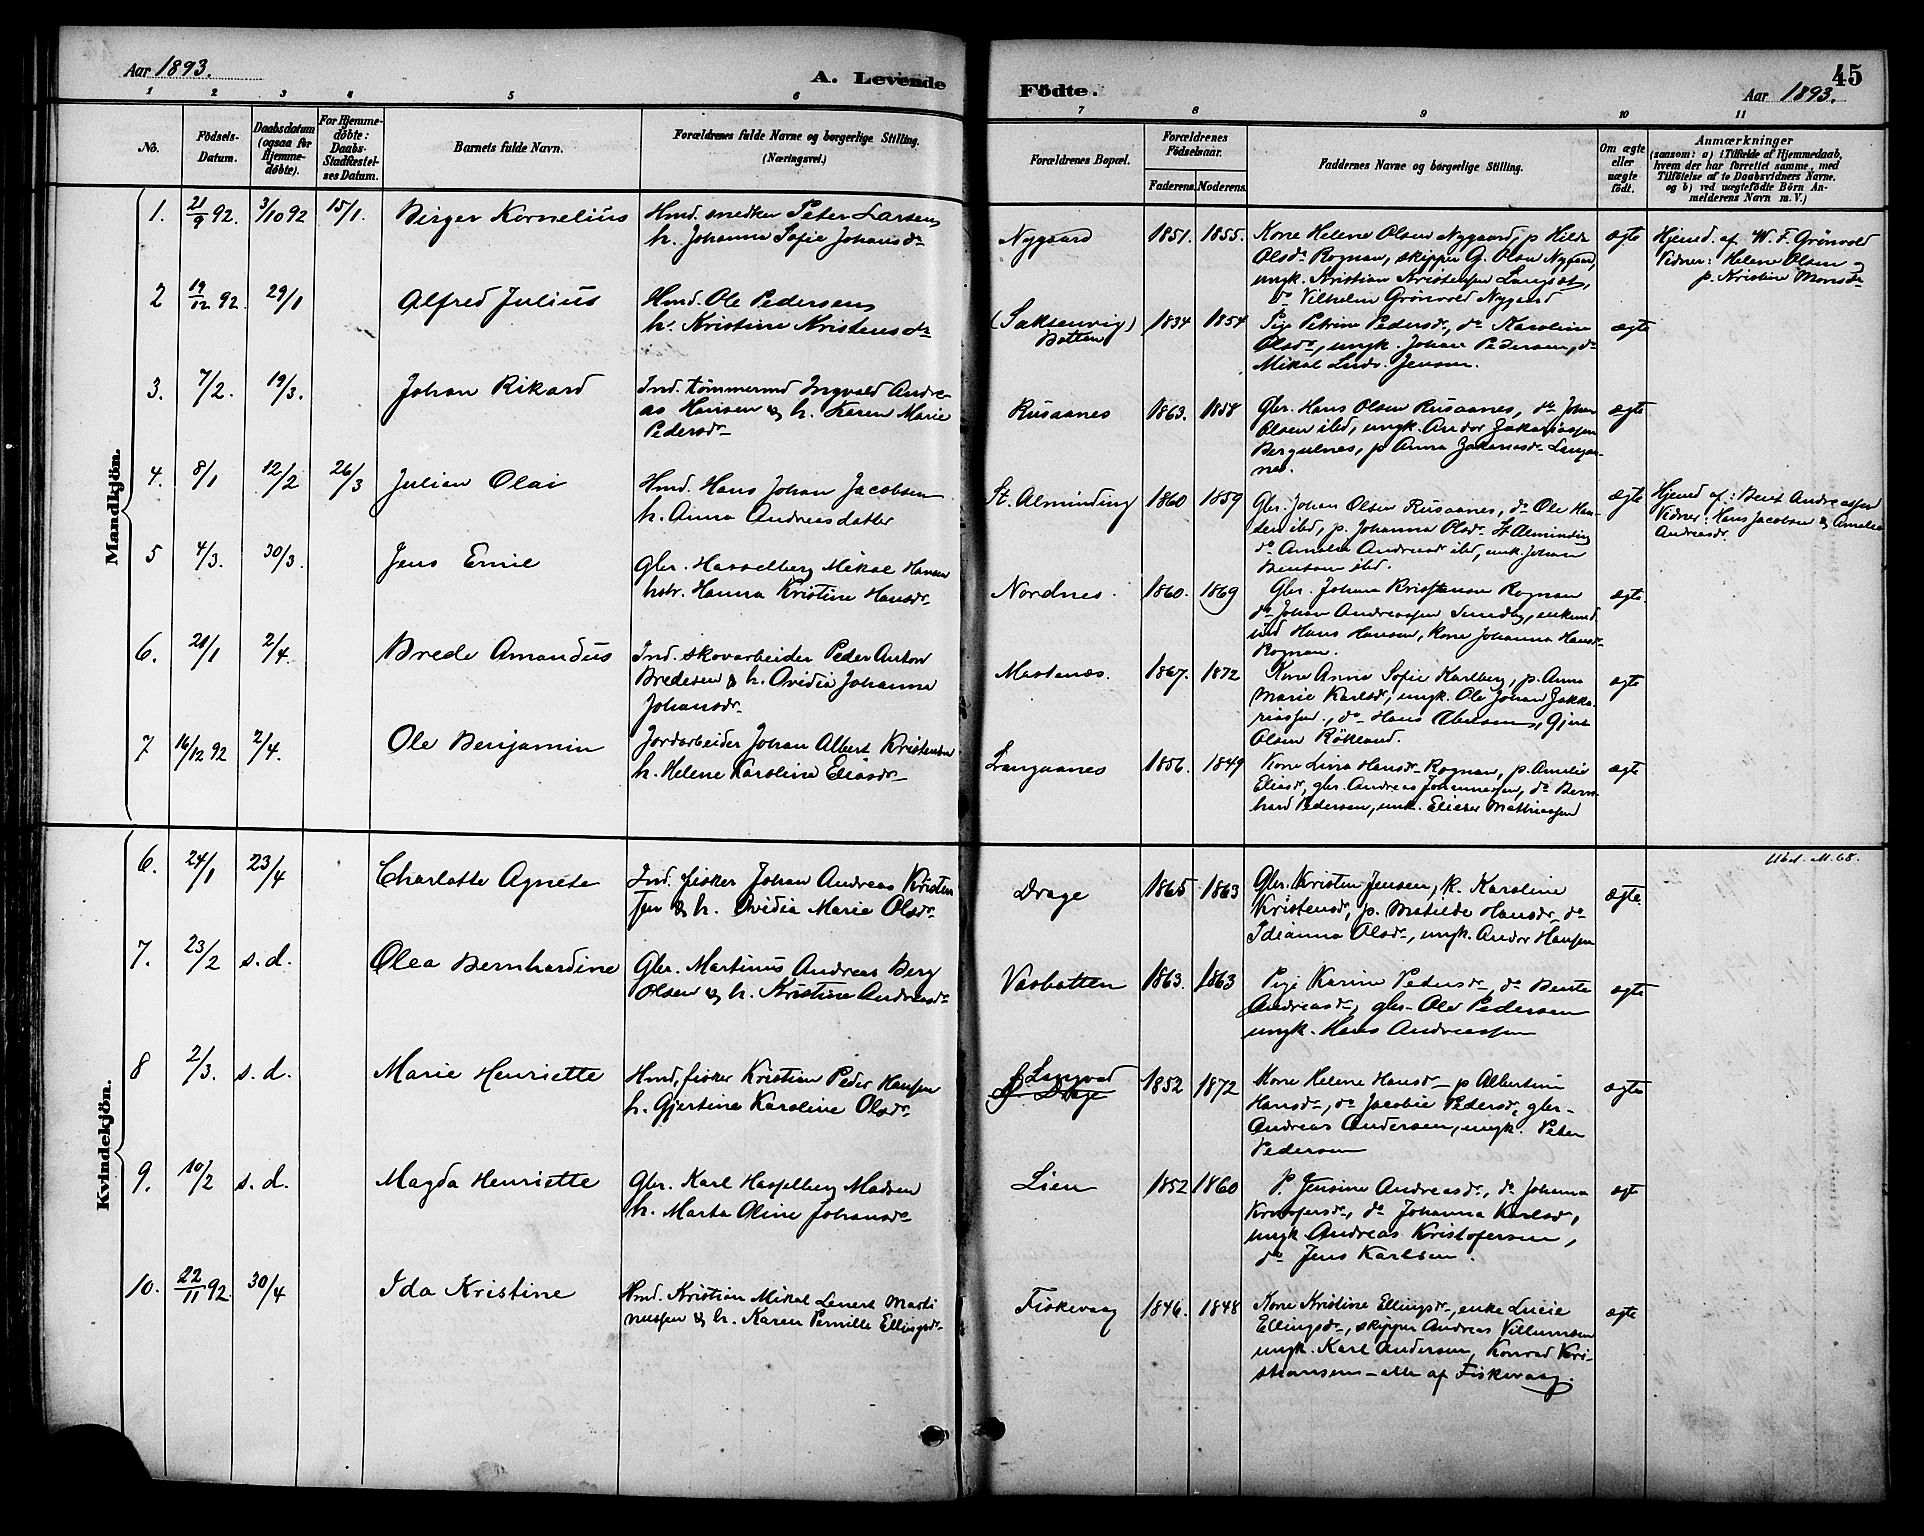 Aar 1893.
A. Levende
Födte.
45
Aar 1893.
1 2 3 4 5 6 7 8 9 10 11
No.
Födsels-
Datum.
Daabsdatum
(ogsaa for
Hjemme-
döbte).
For Hjemme-
döbte:
Daabs-
Stadfæstel-
ses Datum.
Barnets fulde Navn.
Forældrenes fulde Navne og borgerlige Stilling.
(Næringsvei.)
Forældrenes Bopæl.
Forældrenes
Födselsaar.
Faderens. Moderens.
Faddernes Navne og borgerlige Stilling.
Om ægte
eller
uægte
født.
Anmærkninger
(saasom: a) i Tilfælde af Hjemmedaab,
hvem der har forrettet samme, med
Tilföielse af to Daabsvidners Navne.
og b) ved uægtefödte Börn An-
melderens Navn m. V.)
Mandkjön.
1. 21/9 92. 3/10 92 15/1. Birger Kornelius
Hmd. snedker Peter Larsen
h. Johanna Sofie Johansdr
Nygaard 1851. 1855.
Kone Helene Olsen Nygaard, p. Hilda
Olsdr Rognan, skipper G. Olsen Nygaard,
ungk. Kristian Kristensen
do Vilhelm Grönvold Nygaard
ægte
Hjemd. af W. F. Grönvold
Vidner: Helene Olsen og
p. Kristine Monsdr
2 19/12 92. 29/1 Alfred Julius
Hmd. Ole Pedersen
h. Kristine Kristensdr
(Saksenvig)
Botten
1834 1854
Pige Petrine Pedersdr, do Karoline
Olsdr, ungk. Johan Pedersen, do
Mikal Ludv. Jensen.
ægte
3. 7/2. 19/3. Johan Rikard
Ind. tömmermd Ingvald Andre-
as Hansen & h. Karen Marie
Pedersdr
Rusaanes 1863. 1858
Gbr. Hans Olsen Rusaanes, do Johan
Olsen ibd, ungk. Andor Zakariassen
Bergulnes, p Anna Zakariasdr Langaa-
nes.
ægte
4. 8/1 12/2 26/3 Julian Olai
Hmd. Hans Johan Jacobsen
h. Anna Andreasdatter
St. Alminding 1860 1859
Gbr. Johan Olsen Rusaanes, do Ole Han-
sen ibd, p. Johanna Olsdr St Alminding
do Amalia Andreasdr ibd, unk. Johan
Bentsen ibd.
ægte
Hjemd af: Bent Andreassen
Vidner: Hans Jacobsen & Amalia
Andreasdr.
5 4/3. 30/3. Jens Emil
Gbr. Hasselberg Mikal Hansen
hstr. Hanna Kristine Hansdr
Nordnes. 1860. 1869
Gbr. Johan Kristensen Rognan
do Johan Andreassen Sundby, enkemd
ind Hans Hansen, Kone Johanna Hansdr
Rognan.
ægte.
6. 21/1 2/4. Brede Amandus
Ind. skovarbeider Peder Anton
Bredesen & h. Ovidia Johanna
Johansdr
Mestenæs. 1867. 1872
Kone Anne Sofie Karlberg, p. Anna
Marie Karlsdr, ungk. Ole Johan Zakka-
riassen, do Hans Abelsen, Gjert
Olsen Rökland.
ægte
7 16/12 92 2/4. Ole Benjamin
Jordarbeider Johan Albert Kristensen
h. Helene Karoline Eliasdr
Langaanes 1856. 1849
Kone Lina Hansdr Rognan, p. Amalie
Eliasdr, gbr. Andreas Johannesen, do Bern-
hard Pedersen, unk. Elieser Mathiassen
ægte
Kvindekjön.
6. 24/1 23/4 Charlotte Agnete
Ind. fisker Johan Andreas Kristen
sen & h. Ovidia Marie Olsdr
Drage 1865 1863
Gbr. Kristen Jensen, k. Karoline
Kristensdr, p. Matilde Hansdr do
Idianna Olsdr, ungk. Andor Hansen
ægte.
Ubd. M. 68.
7. 23/2 s. d. Olea Bernhardine
Gbr. Martinus Andreas Berg
Olsen & h. Kristine Andreasdr
Vasbotten 1863. 1863
Pige Karine Pedersdr, do Bente
Andreasdr, gbr. Ole Pedersen
ungk. Hans Andreassen
ægte
8 2/3. s. d. Marie Henriette
Hmd, fisker Kristian Peder Hansen
h. Gjertine Karoline Olsdr
Drage
1852 1872
Kone Helene Hansdr p Albertine
Hansdr, do Jacobie Pedersdr, gbr.
Andreas Andersen, ungk. Peter
Pedersen
ægte
9. 10/2 s. d. Magda Henriette
Gbr. Karl Hasselberg Madsen
h. Marta Oline Johansdr
Lien 1852 1860
P. Jensine Andreasdr, do Johanna
Kristofersdr, do Johanna Karlsdr,
ungk Andreas Kristofersen,
do Jens Karlsen.
ægte
10. 22/11 92. 30/4 Ida Kristine
Hmd. Kristian Mikal Lenert Marti
nussen & h. Karen Pernille Ellingsdr
Fiskevaag 1846. 1848
Kone Kristine Ellingsdr, enke Lucie
Ellingsdr, skipper Andreas Villumsen
ungk. Karl Andersen, Konrad Kri-
stiansen - alle af Fiskevaag.
ægte